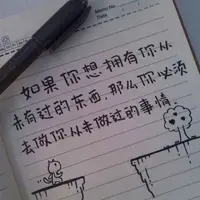 Memo No.
Date
如果你想拥有你从
未有过的东西,那么你必须
去做你从未做过的事情.